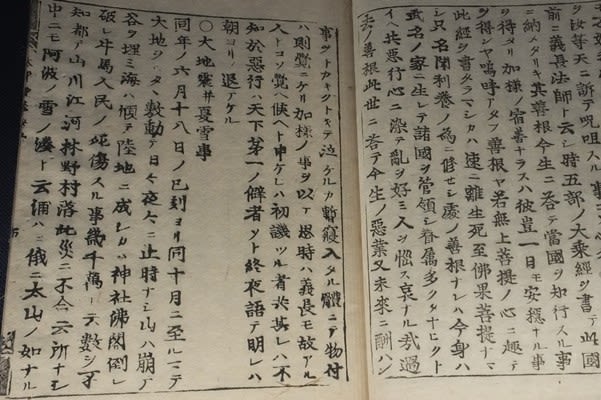 ク汝等天ニ訴テ呪咀
前ニ義長法師ト云シ時五部ノ大乗經ヲ書テ此國
ニ納メタリキ其善根今生ニ荅テ當國ヲ知行スル事
ヲ得タリ加様ノ宿善ナラスハ彼豈一日モ安穏ナル事
ヲ得シヤ嗚呼アタラ善根ヤ若無上菩提ノ心ニ趣テ
此經ヲ書タラマシカハ速ニ離生死至佛果菩提ナマ
シ只名聞利養ノ爲ニ修セシ處ノ善根ナレハ今身ハ
武名ノ家ニ生レテ諸國ヲ管領シ眷属多クナヒクト
イヘ共悪行心ニ染テ亂ヲ好ミ人ヲ惱ス哀ナル哉過
去ノ善根此世ニ荅テ今生ノ悪業又未來ニ酬ハン
事ヲトカキクトキテ泣ケルカ暫寝入タル體ニテ物付
ハ則覺ニケリ加様ノ事ヲ以テ思時ハ義長モ故アル
人トコソ覺ヘ候ヘト申ケレハ初譏ツル者共其レハ不
知於悪行ハ天下第一ノ僻者ソト終夜語テ明レハ
朝ヨリ退アケル
○大地震并夏雪事
同年ノ六月十八日ノ巳刻ヨリ同十月ニ至ルマテ
大地ヲヒタヽ敷動テ日々夜々ニ止時ナシ山ハ崩テ
谷ヲ埋ミ海ハ傾テ陸地ニ成シカハ神社佛閣倒レ
破レ牛馬人民ノ死傷スル事幾千萬ト云數ヲ不
知都テ山川江河林野村落此災ニ不合云所ナシ
中ニモ阿波ノ雪ノ湊ト云浦ニハ俄ニ太山ノ如ナル